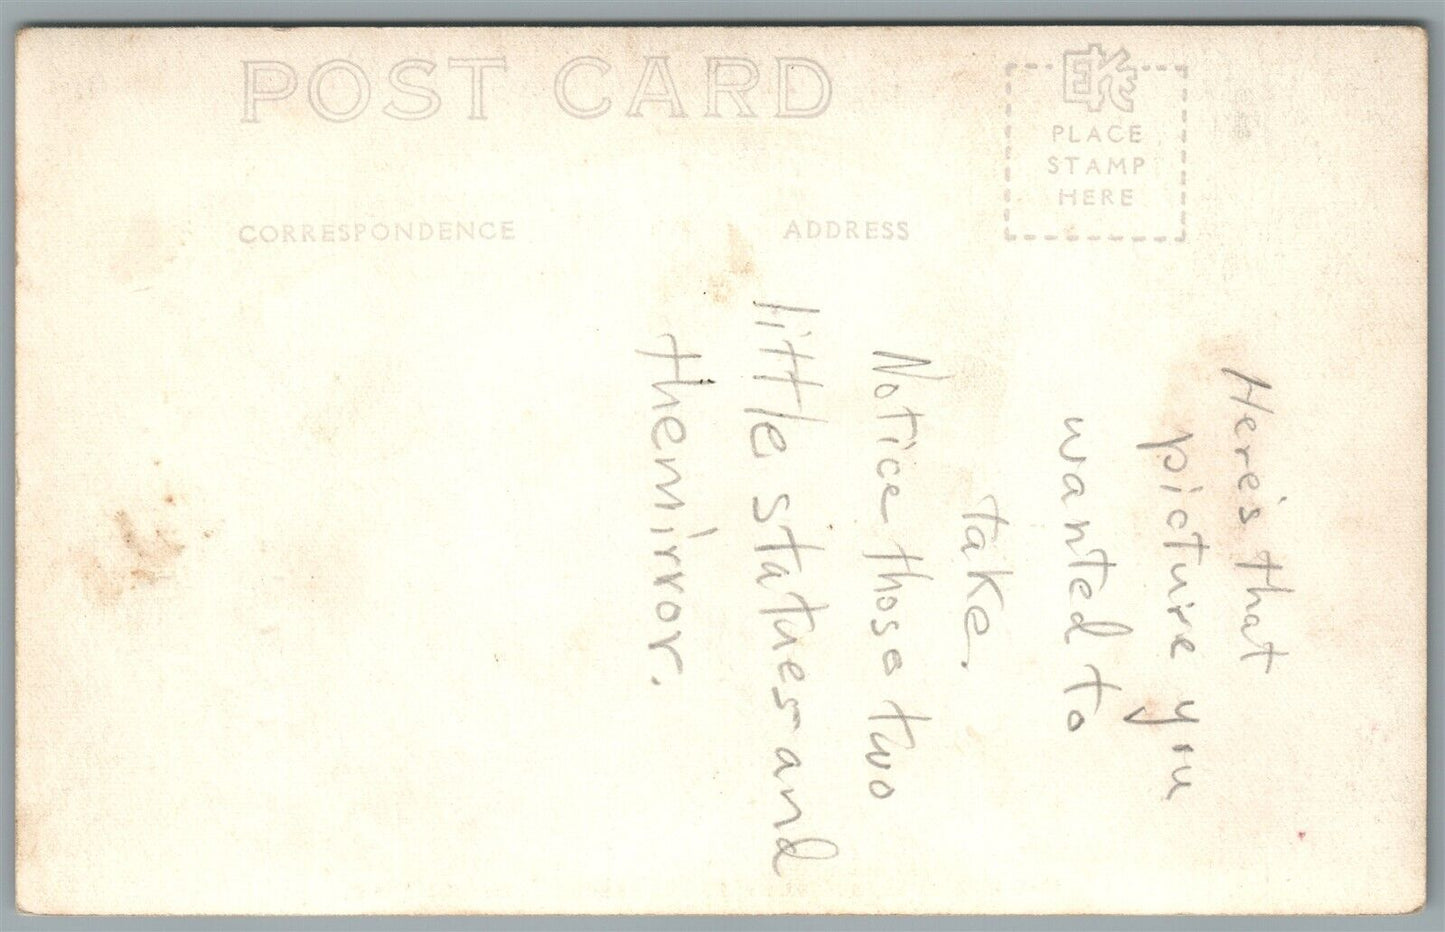 POST CARD
EKC
PLACE
STAMP
HERE
CORRESPONDENCE
ADDRESS
Here's that
picture you
wanted to
take.
Notice those two
little statues and
the mirror.